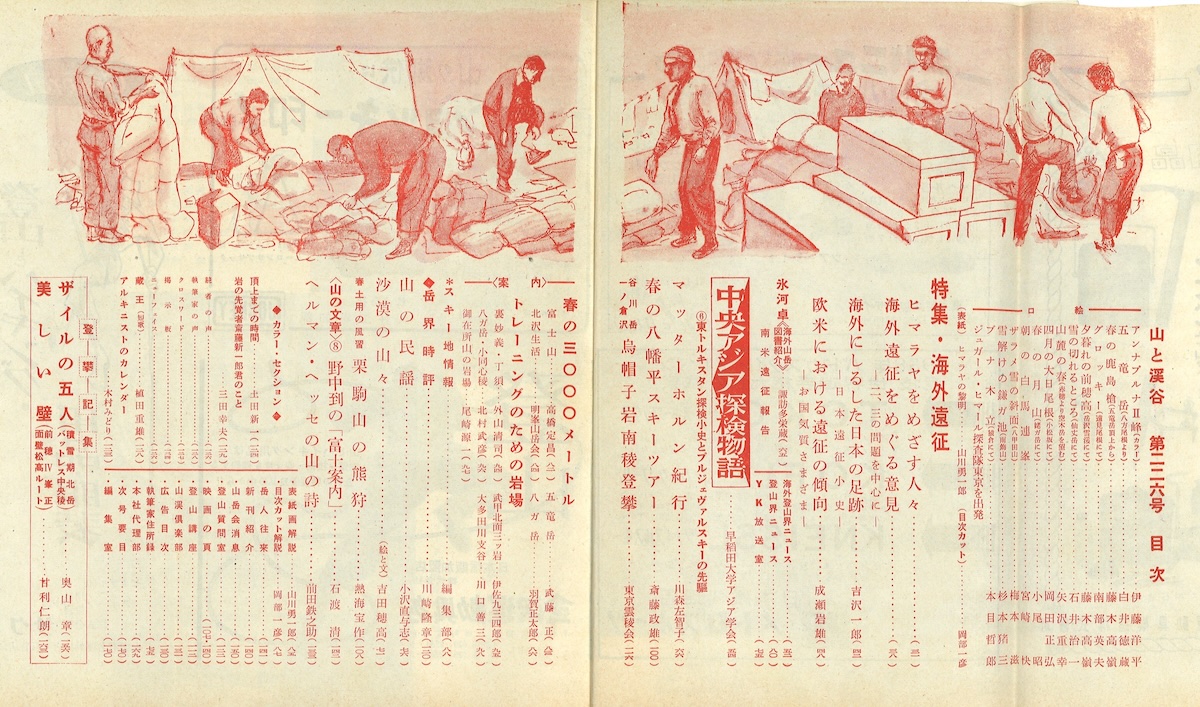 山と溪谷 第二二六号 目次
口絵
アンナプルナⅡ峰(カラー) 伊藤洋平
五竜岳(八方尾根より) 白井徳蔵
春の鹿島槍(五竜岳頂上から) 藤木高嶺
グロッキー(遠見尾根にて) 南部英夫
夕暮れの前穂高(岳沢雪渓にて) 藤木高嶺
雪の切れるところ(仙丈岳にて) 石井治一
山麓の春 矢沢重幸
四月の大日尾根(小松坂にて) 岡田正弘
春の月山 小尾昭
朝の白馬連峯 宮崎快
ザラメ雪の斜面(八甲田山) 梅本滋
雪解けの鎌ガ池 杉本猪三
ブナ木立 本目哲郎
ジュガール・ヒマール探査隊東京を出発
(表紙)ヒマラヤの黎明 山川勇一郎 (目次カット) 岡部一彦
特集・海外遠征
ヒマラヤをめざす人々
海外遠征をめぐる意見
―二、三の問題を中心に―
海外にしるした日本の足跡 吉沢一郎
―日本遠征小史―
欧米における遠征の傾向 成瀬岩雄
―お国気質さまざま―
氷河卓
(海外山岳図書紹介) 諏訪多栄蔵
南米遠征報告
海外登山界ニュース
登山界ニュース
YK放送室
中央アジア探検物語
早稲田大学アジア学会
⑥東トルキスタン探検小史とプルジェヴァルスキーの先駆
マッターホルン紀行 川森左智子
春の八幡平スキーツアー 斎藤政雄(100)
谷川岳一ノ倉沢 烏帽子岩南稜登攀 東京雲稜会
春の三〇〇〇メートル
富士山 高橋定昌
五竜岳 武藤正
北沢生活 明峯山岳会
八ガ岳 羽賀正太郎
〈案内〉
トレーニングのための岩場
裏妙義・丁須 外山清司
武甲北面三ッ岩 伊佐九三四郎
八ガ岳・小同心稜 北村武彦
大多田川支谷 川口善三
御在所山の岩場 尾崎源一
*スキー地情報 編集部
◆岳界時評 川崎隆章
山の民謡 小沢直与志
沙漠の山々 (絵と文)吉田穂高
春土用の風習 栗駒山の熊狩 熱海宝作
〈山の文章〉⑧ 野中到の「富士案内」 石渡清
ヘルマン・ヘッセの山の詩 前田鉄之助
◆カラー・セクション◆
頂上までの時間 土田新一
岩の先覚者斎藤新一郎君のこと
三田幸夫
読者の声
執筆家の声
クロスワード
掲示板
ニューフェイス
蔵王(短歌) 植田重雄
アルキニストのカレンダー
木村みどり
表紙画解説 山川勇一郎
目次カット解説 岡部一彦
岳人往来
新刊紹介
山岳会消息
登山質問室
映画の頁
登山講座
山溪倶楽部
広告目次
執筆家住所録
本社代理部
次号要目
編集室
登攀記集
ザイルの五人(積雪期北岳バットレス中央稜) 奥山章
美しい壁(前穂Ⅳ峯正面壁松高ルート) 甘利仁朗